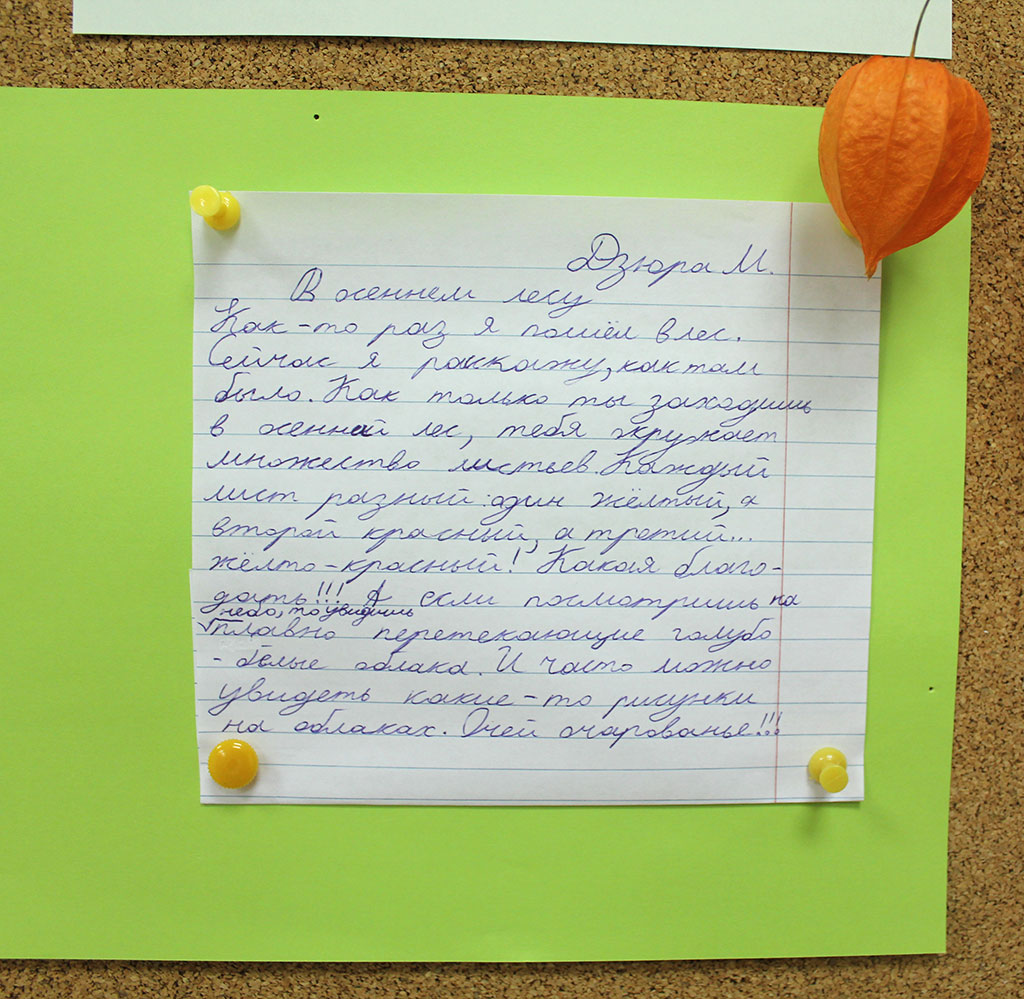 Дзюра М.
В осеннем лесу
Как-то раз я пошёл в лес.
Сейчас я расскажу, как там
было. Как только ты заходишь
в осенний лес, тебя окружает
множество листьев. Каждый
лист разный: один жёлтый, а
второй красный, а третий...
жёлто-красный! Какая благо-
дать!!! А если посмотришь на
небо, то увидишь
√плавно перетекающие голубо
- белые облака. И часто можно
увидеть какие-то рисунки
на облаках. Очей очарованье!!!